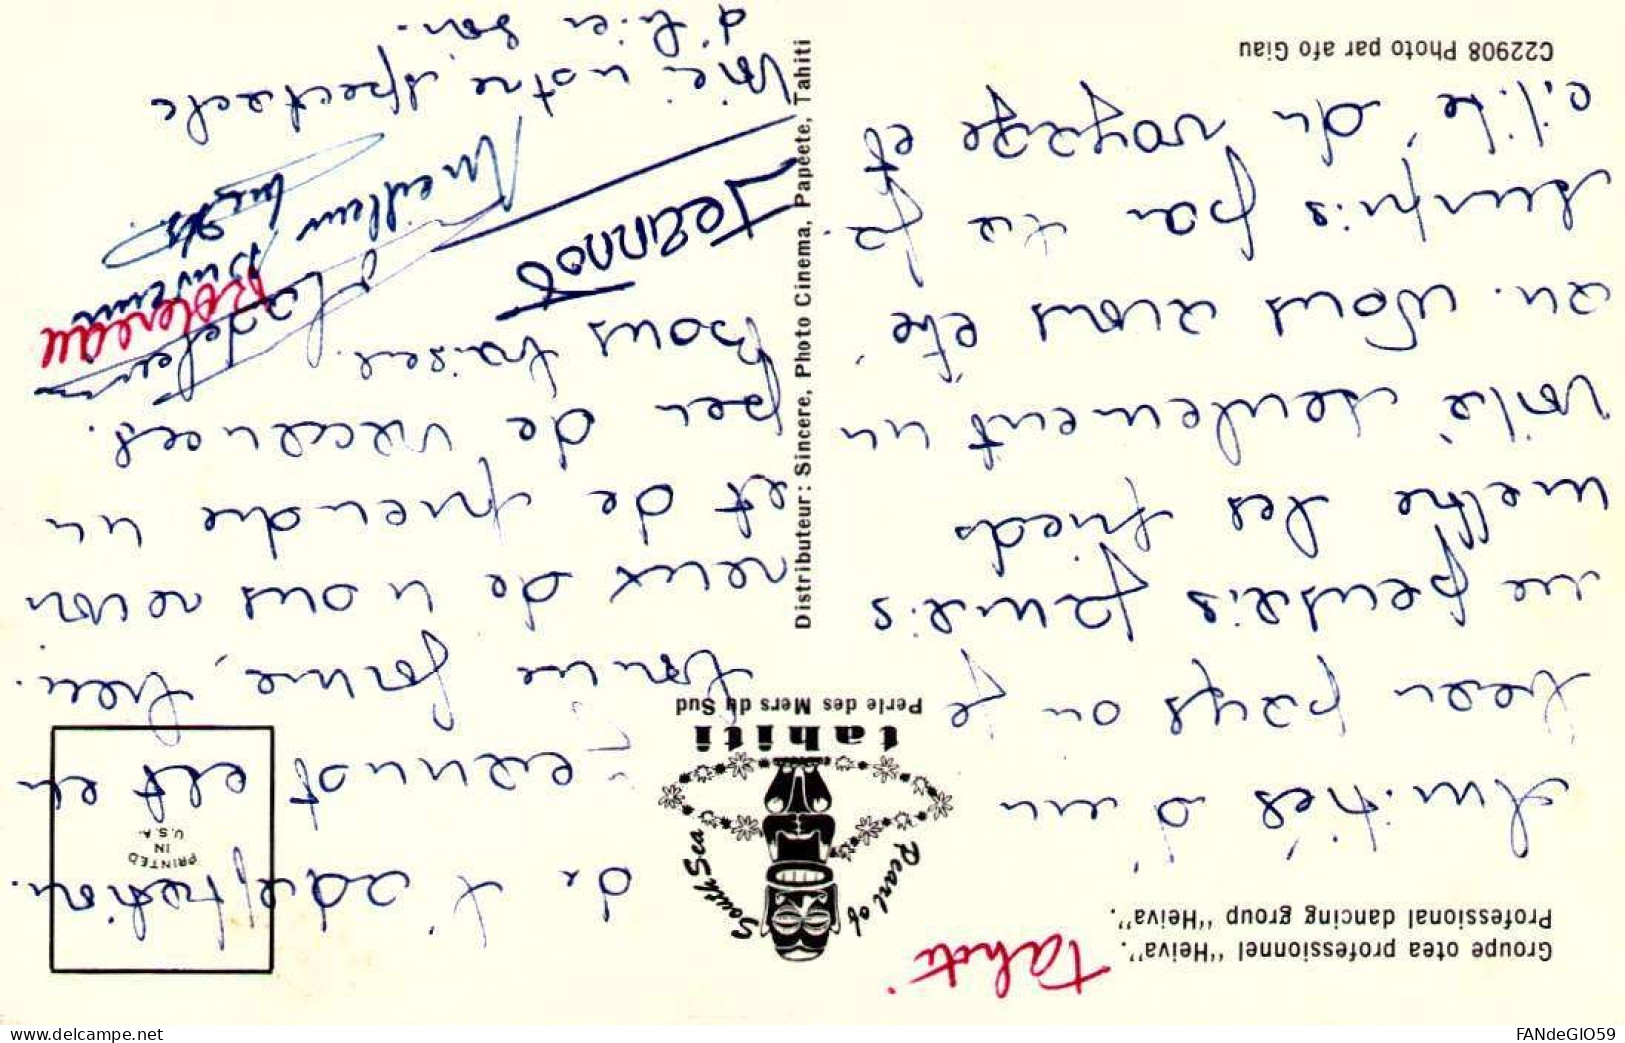 Groupe otea professionnel "Heiva".
Professional dancing group "Heiva".
Tahiti
Amitiés d'un
beau pays ou je
ne pensais jamais
mettre les pieds
voilà seulement un
an. Nous avons été
surpris par la fa-
cilité du voyage et
de l'adaptation.
Jeannot est en
bonne forme, heu-
reux de nous revoir
et de prendre un
peu de vacances.
Bous baisers.
Jeannot
Meilleur
Rolereau
Mie notre spectacle
d'hier soir.
Pearl of South Sea
tahiti
Perle des Mers du Sud
PRINTED
IN
U.S.A.
Distributeur: Sincere, Photo Cinema, Papeete, Tahiti
C22908 Photo par afo Giau
delcampe.net
FANdeGIO59